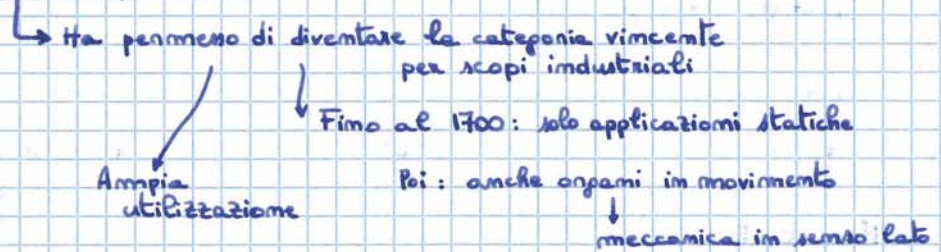 Ha permesso di diventare la categoria vincente
per scopi industriali
Fino al 1700: solo applicazioni statiche
Ampia
utilizzazione
Poi: anche organi in movimento
meccanica in senso lato